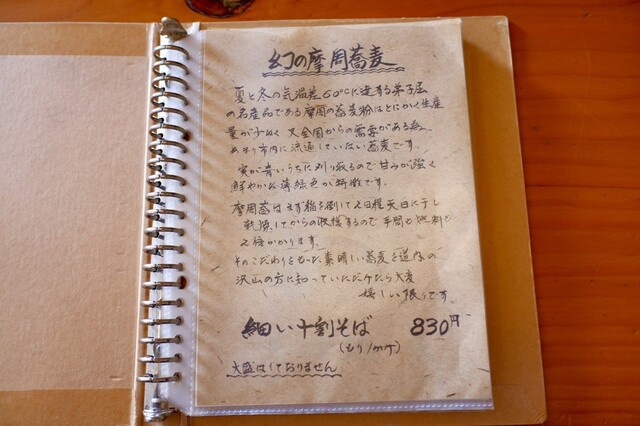 幻の摩周蕎麦
夏と冬の気温差60℃に達する弟子屈
の名産品である摩周の蕎麦粉はとにかく生産
量が少なく 又全国からの需要がある為
あまり市内に流通していない蕎麦です。
実が青いうちに刈り取るので甘みが強く
鮮やかな薄緑色が特徴です。
摩周蕎はまず稲を倒して2日程天日に干し
乾燥してからの収穫するので手間も燃料も
2倍かかります。
そのこだわりをもった素晴しい蕎麦を道内の
沢山の方に知っていただけたら大変
嬉しい限りです。
細い十割そば 830円
(もり/かけ)
大盛はしておりません